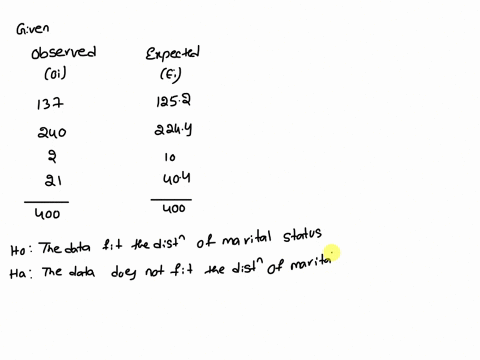 Given
Observed Expected
(Oi) (Ei)
137 125.2
240 224.4
2 10
21 40.4
400 400
Ho: The data fit the distⁿ of marital status
Ha: The data does not fit the distⁿ of marita